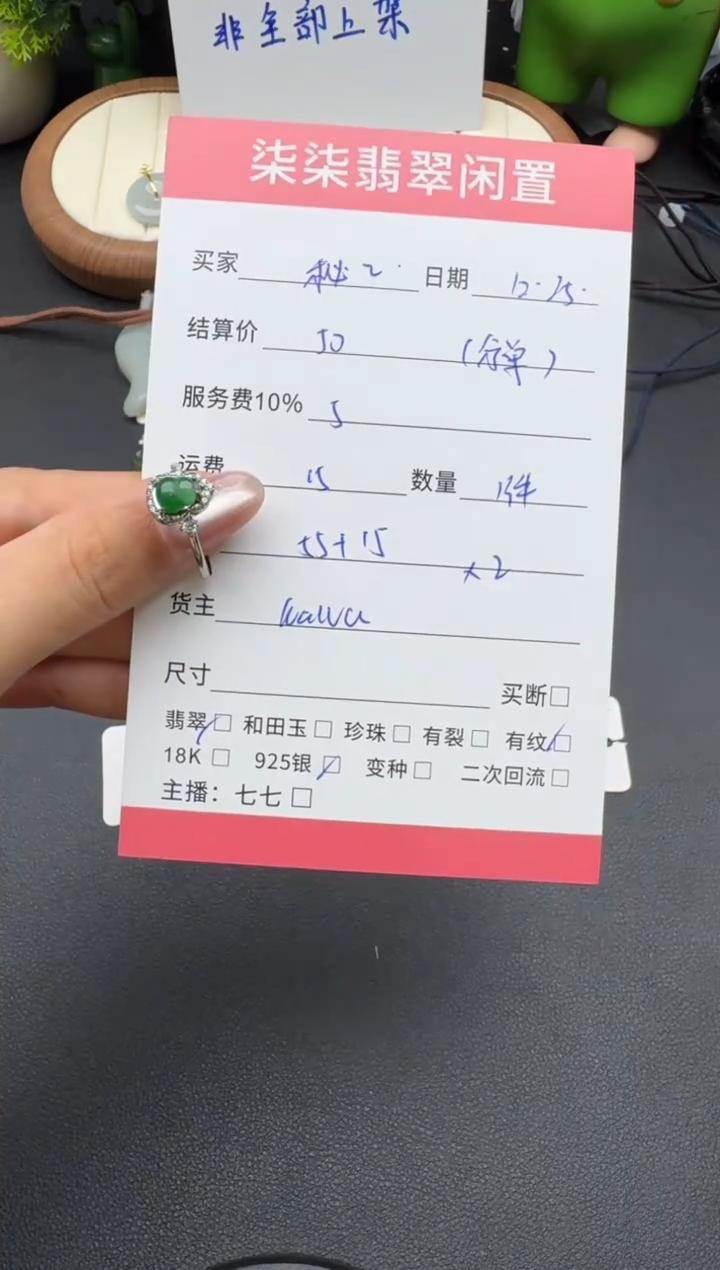 非全部上架
柒柒翡翠闲置
买家 秘乙 日期 12.25.
结算价 50 (分单)
服务费10% 5
运费 15 数量 1件
55+15 ×2
货主 kawa
尺寸 买断☐
翡翠☐ 和田玉☐ 珍珠☐ 有裂☐ 有纹☐
18K☐ 925银☐ 变种☐ 二次回流☐
主播：七七☐